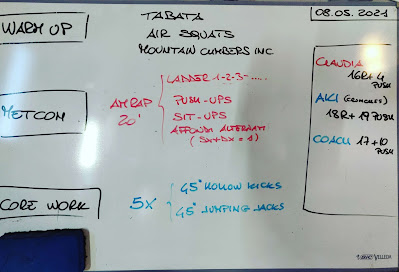 WARM UP
TABATA
AIR SQUATS
MOUNTAIN CLIMBERS INC
08.05.2021
METCOM
AMRAP
20'
LADDER 1-2-3-.....
PUSH-UPS
SIT-UPS
AFFONDI ALTERNATI
(SX+DX=1)
CORE WORK
5X
45" HOLLOW KICKS
45" JUMPING JACKS
CLAUDIA
16R+4
PUSH
AKI (CRUNCHES)
18R+19 PUSH
COACH 17+10
PUSH